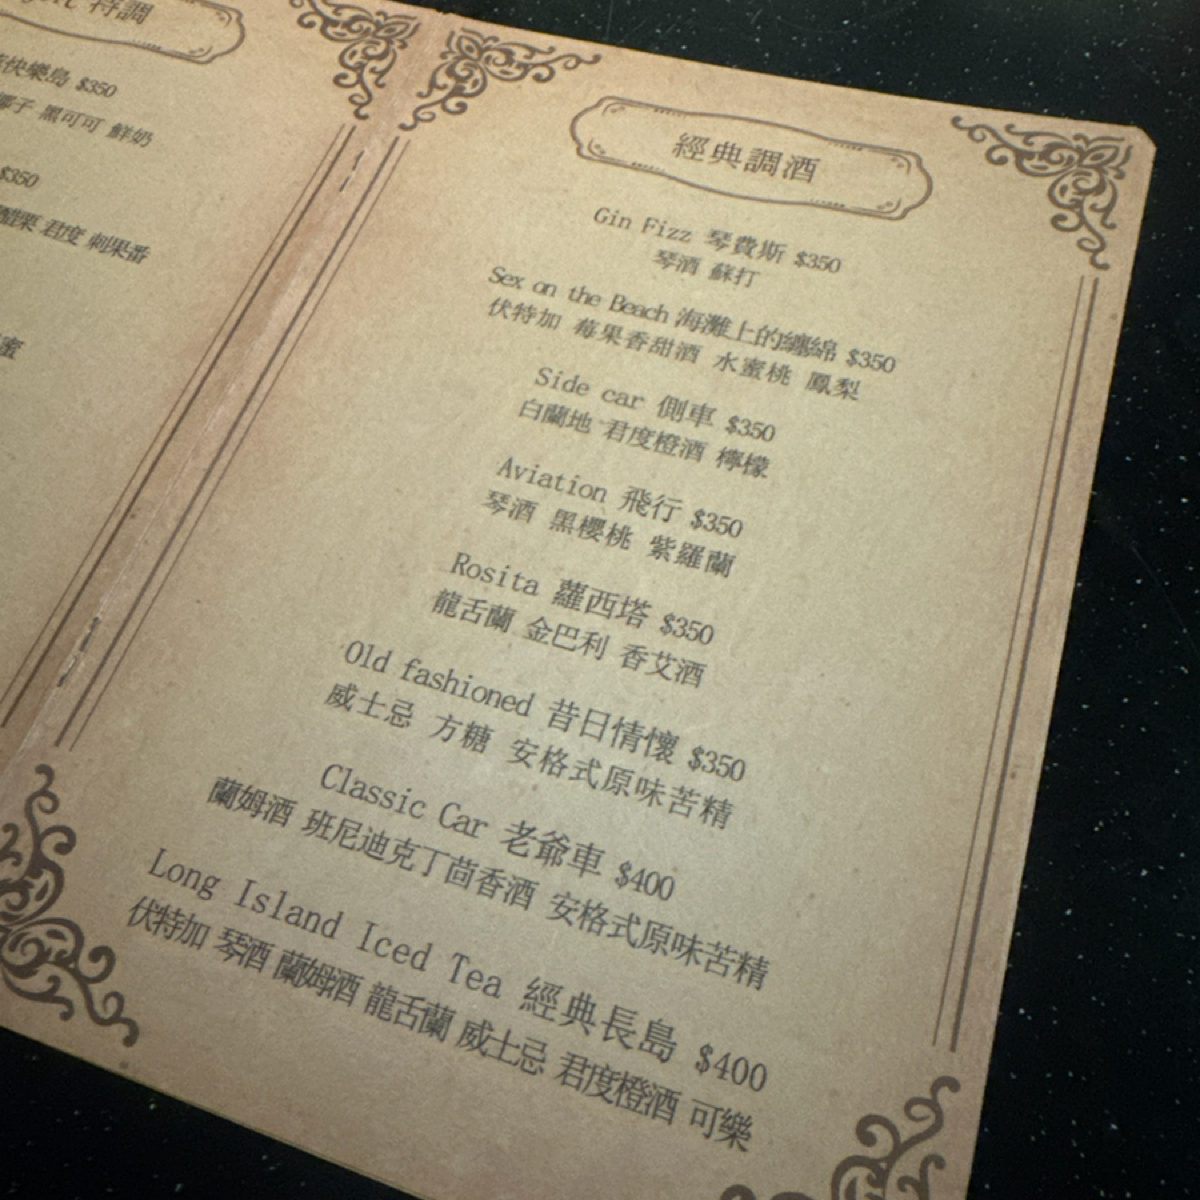 特調
快樂島 $350
椰子 黑可可 鮮奶
$350
醋栗 君度 刺果番
蜜
經典調酒
Gin Fizz 琴費斯 $350
琴酒 蘇打
Sex on the Beach 海灘上的纏綿 $350
伏特加 莓果香甜酒 水蜜桃 鳳梨
Side car 側車 $350
白蘭地 君度橙酒 檸檬
Aviation 飛行 $350
琴酒 黑櫻桃 紫羅蘭
Rosita 蘿西塔 $350
龍舌蘭 金巴利 香艾酒
Old fashioned 昔日情懷 $350
威士忌 方糖 安格式原味苦精
Classic Car 老爺車 $400
蘭姆酒 班尼迪克丁茴香酒 安格式原味苦精
Long Island Iced Tea 經典長島 $400
伏特加 琴酒 蘭姆酒 龍舌蘭 威士忌 君度橙酒 可樂